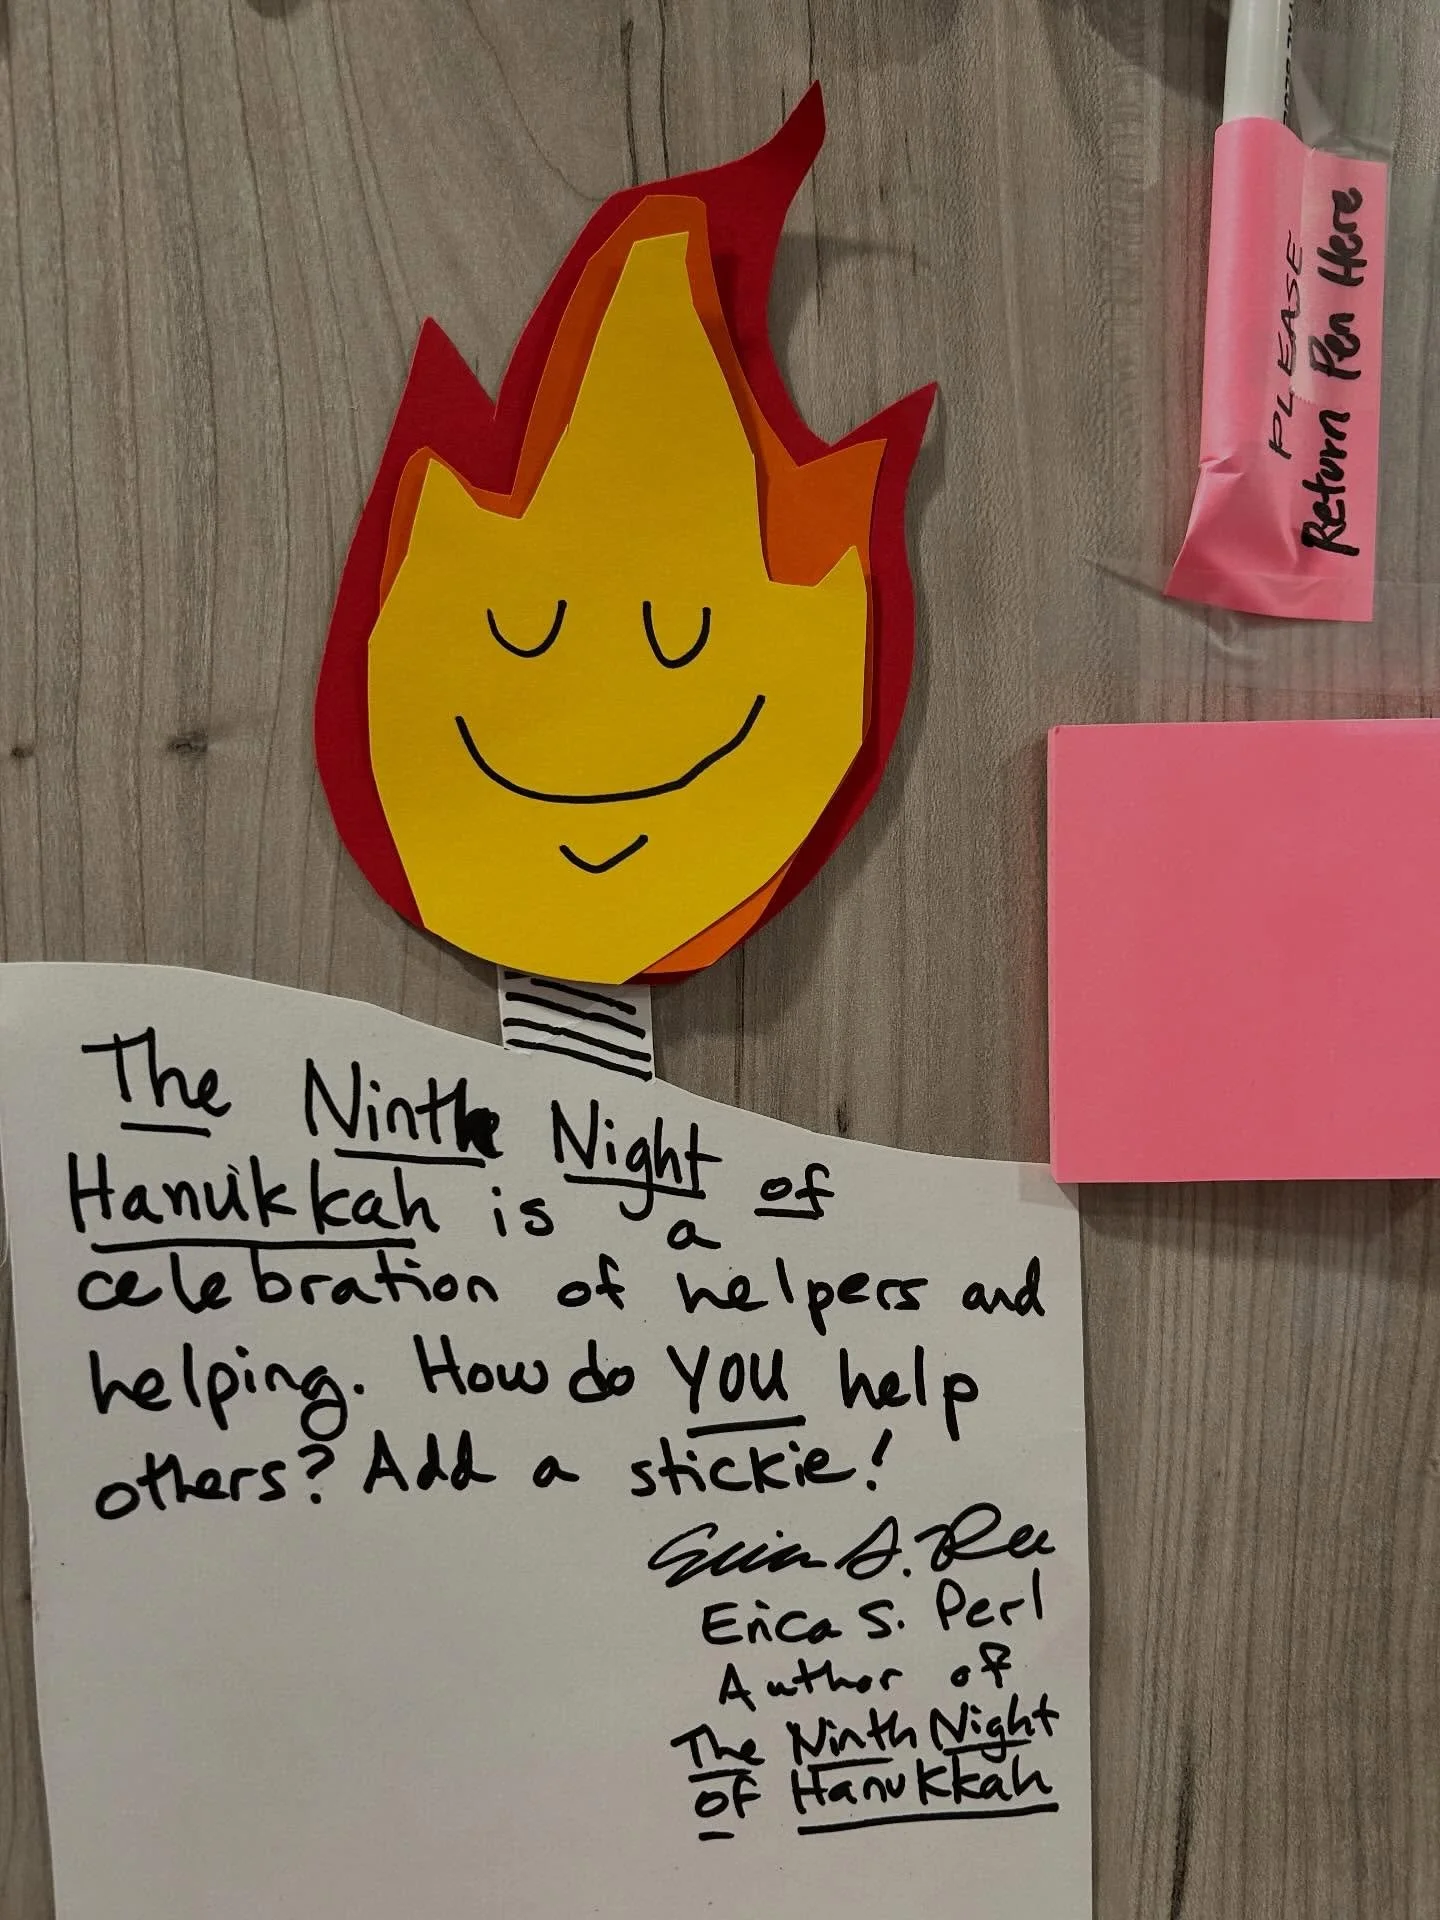 PLEASE
Return Pen Here
The Ninth Night of
Hanukkah is a
celebration of helpers and
helping. How do YOU help
others? Add a stickie!
Erica S. Perl
Author of
The Ninth Night
of Hanukkah